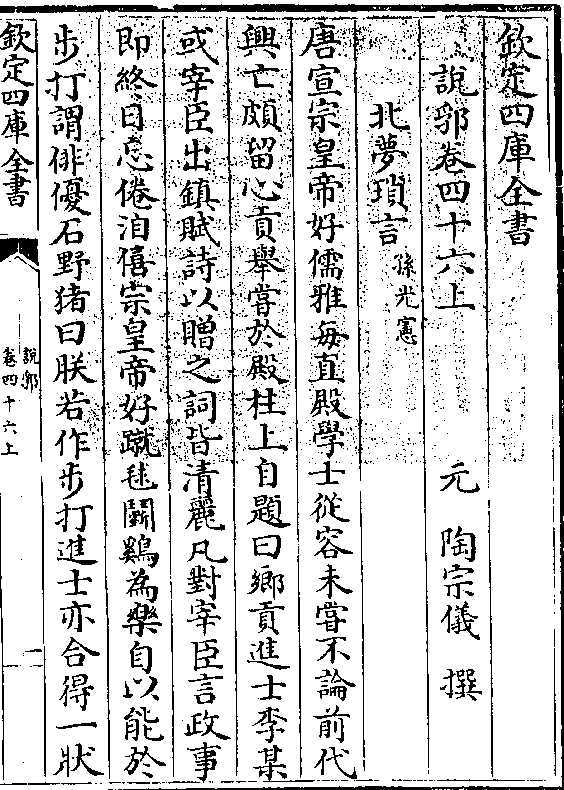 欽定四庫全書
說郛卷四十六上
元 陶宗儀 撰
北夢瑣言 孫光憲
唐宣宗皇帝好儒雅每直殿學士從容未嘗不論前代
興亡頗留心貢舉嘗於殿柱上自題曰鄉貢進士李某
或宰臣出鎮賦詩以贈之詞皆清麗凡對宰臣言政事
即終日忘倦洎僖宗皇帝好蹴毬鬭鷄為樂自以能於
步打謂俳優石野猪曰朕若作步打進士亦合得一狀
欽定四庫全書
說郛
卷四十六上
一